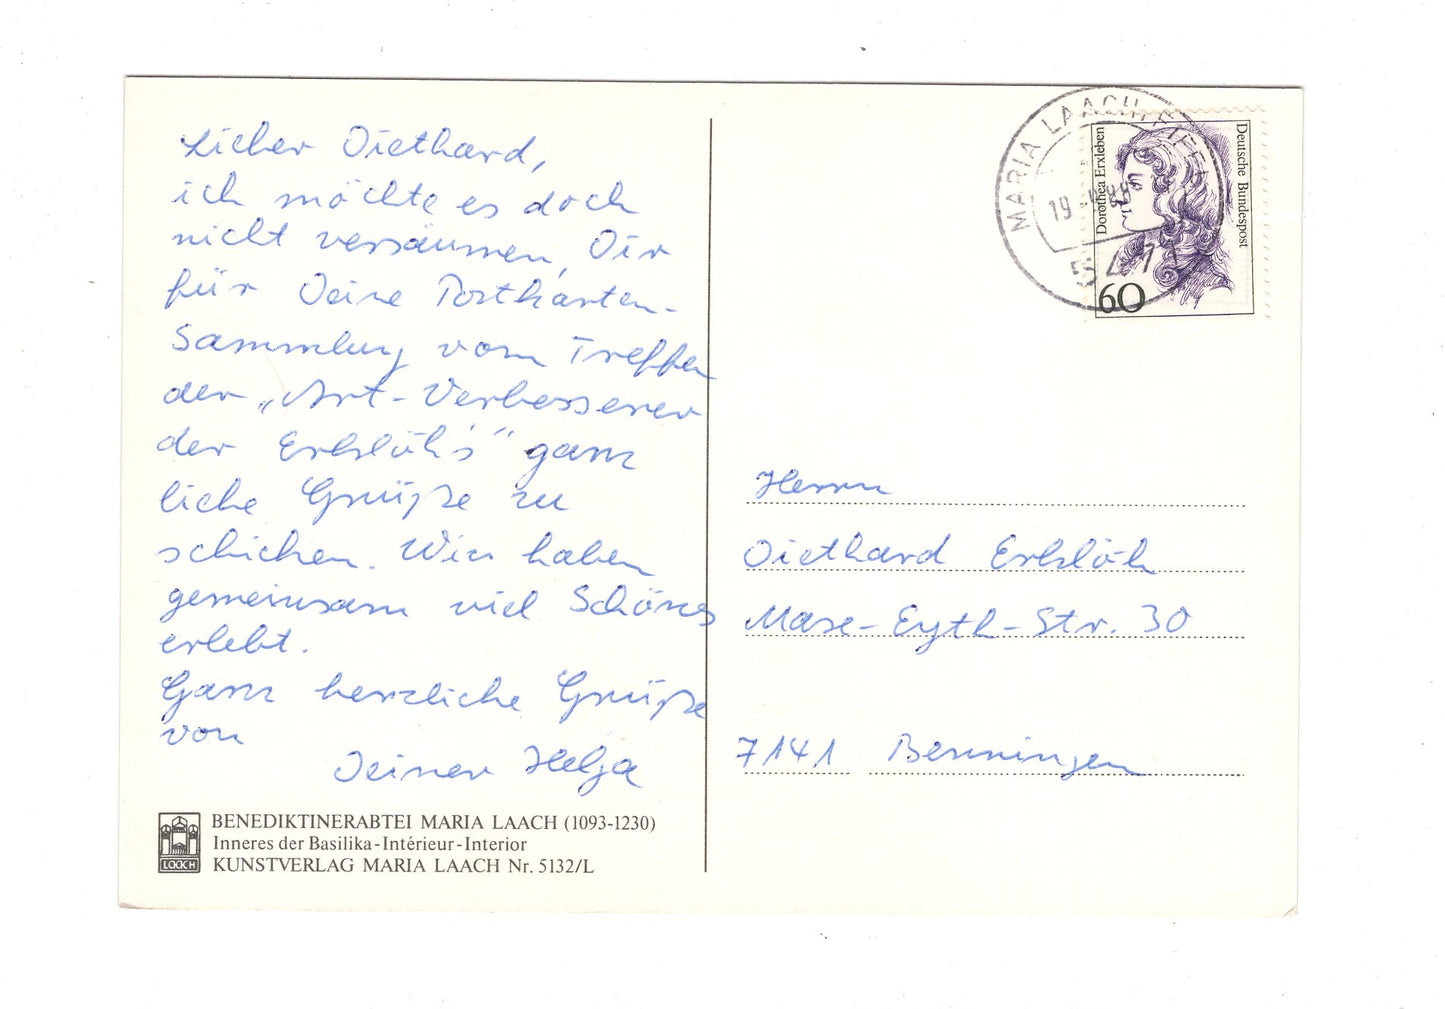 Lieber Diethard,
ich möchte es doch
nicht versäumen, Dir
für Deine Postkarten-
Sammlung vom Treffen
der „Art-Verbesserer
der Erkslöh's" ganz
liche Grüße zu
schicken. Wir haben
gemeinsam viel Schönes
erlebt.
Ganz herzliche Grüße
von
Deiner Helga
BENEDIKTINERABTEI MARIA LAACH (1093-1230)
Inneres der Basilika-Intérieur-Interior
KUNSTVERLAG MARIA LAACH Nr. 5132/L
LAACH
MARIA LAACH
19
5471
Dorothea Erxleben
Deutsche Bundespost
60
Herrn
Diethard
Str. 30
7141 Benningen